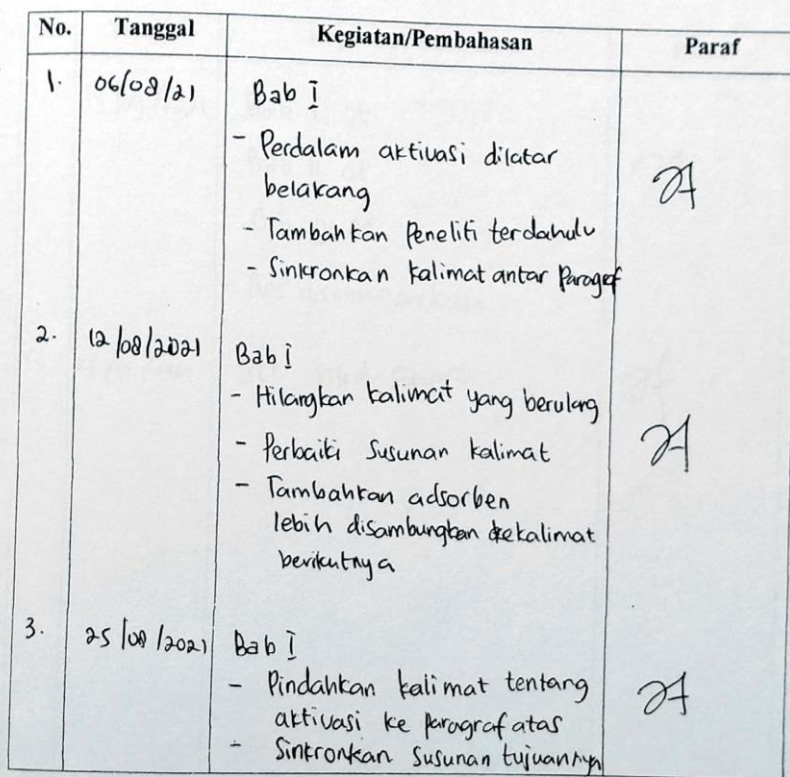 No. Tanggal Kegiatan/Pembahasan Paraf
1. 06/08/21 Bab I
- Perdalam aktivasi dilatar
belakang
- Tambahkan Peneliti terdahulu
- Sinkronkan kalimat antar Paragef
2. 12/08/2021 Bab I
- Hilangkan kalimat yang berulang
- Perbaiki Susunan kalimat
- Tambahkan adsorben
lebih disambungkan kekalimat
berikutnya
3. 25/08/2021 Bab I
- Pindahkan kalimat tentang
aktivasi ke paragraf atas
- Sinkronkan susunan tujuannya